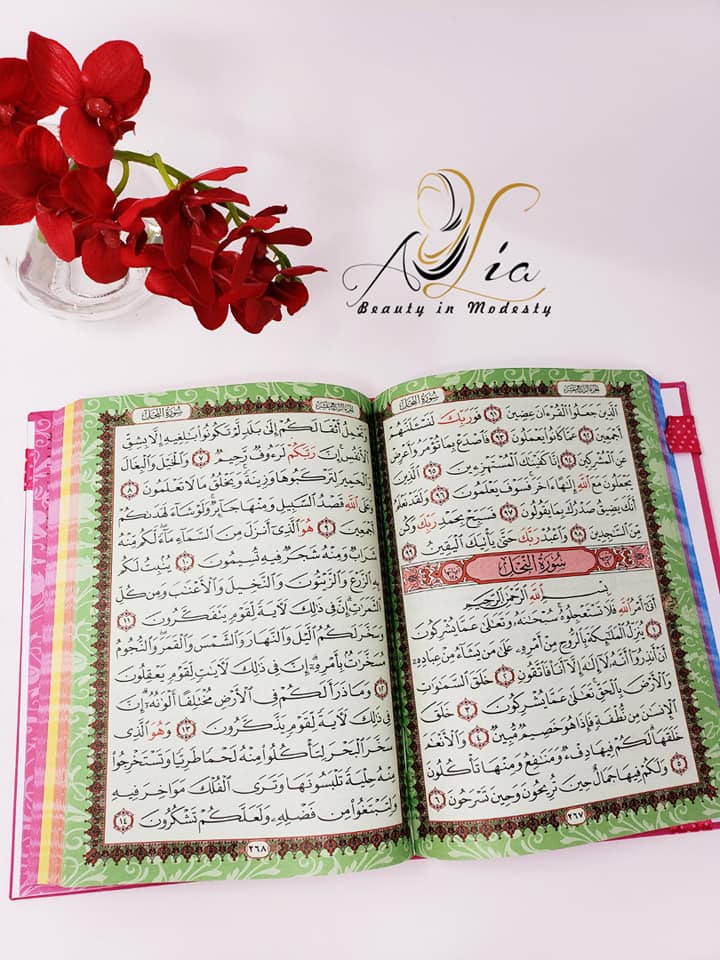 Aylia
Beauty in Modesty
الجزء الرابع عشر
سُورَةُ النَّحْلِ
الَّذِينَ جَعَلُوا الْقُرْءَانَ عِضِينَ ٩١ فَوَرَبِّكَ لَنَسْـَٔلَنَّهُمْ
أَجْمَعِينَ ٩٢ عَمَّا كَانُوا يَعْمَلُونَ ٩٣ فَاصْدَعْ بِمَا تُؤْمَرُ وَأَعْرِضْ
عَنِ الْمُشْرِكِينَ ٩٤ إِنَّا كَفَيْنَٰكَ الْمُسْتَهْزِءِينَ ٩٥ الَّذِينَ
يَجْعَلُونَ مَعَ اللَّهِ إِلَٰهًا ءَاخَرَ فَسَوْفَ يَعْلَمُونَ ٩٦ وَلَقَدْ نَعْلَمُ
أَنَّكَ يَضِيقُ صَدْرُكَ بِمَا يَقُولُونَ ٩٧ فَسَبِّحْ بِحَمْدِ رَبِّكَ وَكُن
مِّنَ السَّٰجِدِينَ ٩٨ وَاعْبُدْ رَبَّكَ حَتَّىٰ يَأْتِيَكَ الْيَقِينُ ٩٩
سُورَةُ النَّحْلِ
بِسْمِ اللَّهِ الرَّحْمَٰنِ الرَّحِيمِ
أَتَىٰ أَمْرُ اللَّهِ فَلَا تَسْتَعْجِلُوهُ سُبْحَٰنَهُ وَتَعَٰلَىٰ عَمَّا يُشْرِكُونَ
١ يُنَزِّلُ الْمَلَٰٓئِكَةَ بِالرُّوحِ مِنْ أَمْرِهِ عَلَىٰ مَن يَشَآءُ مِنْ عِبَادِهِ
أَنْ أَنذِرُوا أَنَّهُ لَآ إِلَٰهَ إِلَّآ أَنَا فَاتَّقُونِ ٢ خَلَقَ السَّمَٰوَٰتِ
وَالْأَرْضَ بِالْحَقِّ تَعَٰلَىٰ عَمَّا يُشْرِكُونَ ٣ خَلَقَ
الْإِنسَٰنَ مِن نُّطْفَةٍ فَإِذَا هُوَ خَصِيمٌ مُّبِينٌ ٤ وَالْأَنْعَٰمَ
خَلَقَهَا لَكُمْ فِيهَا دِفْءٌ وَمَنَٰفِعُ وَمِنْهَا تَأْكُلُونَ
٥ وَلَكُمْ فِيهَا جَمَالٌ حِينَ تُرِيحُونَ وَحِينَ تَسْرَحُونَ ٦
٢٦٧
الجزء الرابع عشر
سُورَةُ النَّحْلِ
وَتَحْمِلُ أَثْقَالَكُمْ إِلَىٰ بَلَدٍ لَّمْ تَكُونُوا بَٰلِغِيهِ إِلَّا بِشِقِّ
الْأَنفُسِ إِنَّ رَبَّكُمْ لَرَءُوفٌ رَّحِيمٌ ٧ وَالْخَيْلَ وَالْبِغَالَ
وَالْحَمِيرَ لِتَرْكَبُوهَا وَزِينَةً وَيَخْلُقُ مَا لَا تَعْلَمُونَ ٨
وَعَلَى اللَّهِ قَصْدُ السَّبِيلِ وَمِنْهَا جَآئِرٌ وَلَوْ شَآءَ لَهَدَىٰكُمْ
أَجْمَعِينَ ٩ هُوَ الَّذِي أَنزَلَ مِنَ السَّمَآءِ مَآءً لَّكُم مِّنْهُ
شَرَابٌ وَمِنْهُ شَجَرٌ فِيهِ تُسِيمُونَ ١٠ يُنبِتُ لَكُم
بِهِ الزَّرْعَ وَالزَّيْتُونَ وَالنَّخِيلَ وَالْأَعْنَٰبَ وَمِن كُلِّ
الثَّمَرَٰتِ إِنَّ فِي ذَٰلِكَ لَءَايَةً لِّقَوْمٍ يَتَفَكَّرُونَ ١١
وَسَخَّرَ لَكُمُ الَّيْلَ وَالنَّهَارَ وَالشَّمْسَ وَالْقَمَرَ وَالنُّجُومُ
مُسَخَّرَٰتٌ بِأَمْرِهِ إِنَّ فِي ذَٰلِكَ لَءَايَٰتٍ لِّقَوْمٍ يَعْقِلُونَ
١٢ وَمَا ذَرَأَ لَكُمْ فِي الْأَرْضِ مُخْتَلِفًا أَلْوَٰنُهُ إِنَّ
فِي ذَٰلِكَ لَءَايَةً لِّقَوْمٍ يَذَّكَّرُونَ ١٣ وَهُوَ الَّذِي
سَخَّرَ الْبَحْرَ لِتَأْكُلُوا مِنْهُ لَحْمًا طَرِيًّا وَتَسْتَخْرِجُوا
مِنْهُ حِلْيَةً تَلْبَسُونَهَا وَتَرَى الْفُلْكَ مَوَاخِرَ فِيهِ
وَلِتَبْتَغُوا مِن فَضْلِهِ وَلَعَلَّكُمْ تَشْكُرُونَ ١٤
٢٦٨